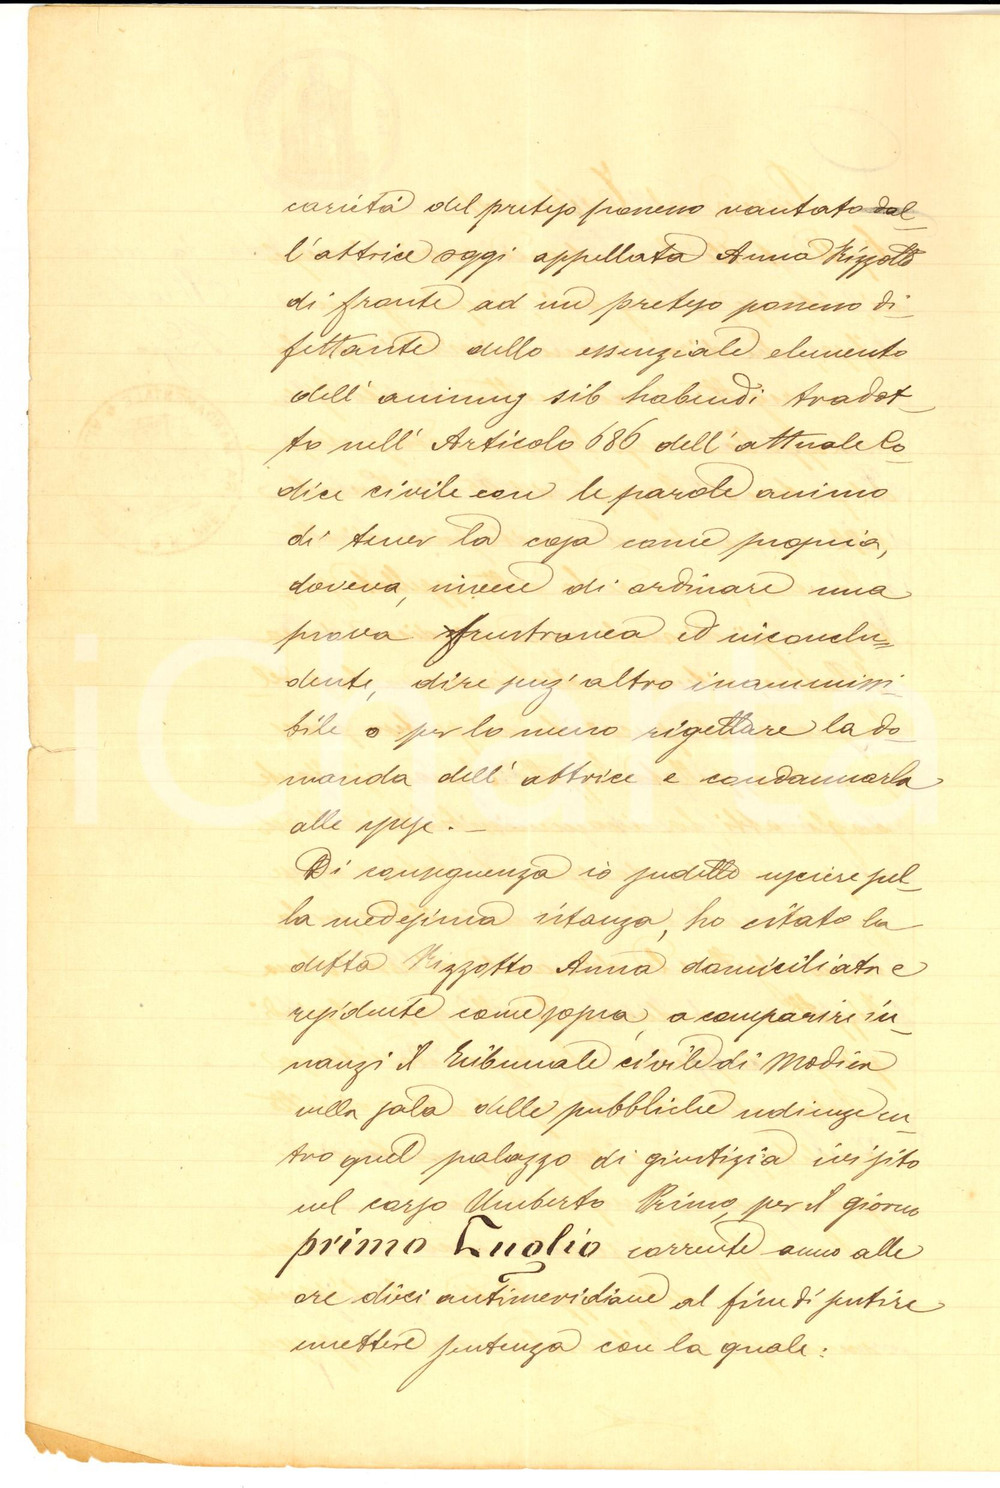 carietà del preteso possesso vantato dal-
l'attrice oggi appellata Anna Rizzotto
di fronte ad un preteso possesso di-
fettante dello essenziale elemento
dell'animus sib habendi tradot-
to nell'Articolo 686 dell'attuale Co-
dice civile con le parole animo
di tener la cosa come propria,
doveva, invece di ordinare una
prova frustranea ed inconclu=
dente, dire senz'altro inammissi-
bile o per lo meno rigettare la do-
manda dell'attrice e condannarla
alle spese. —
Di conseguenza io sudetto usciere sul-
la medesima istanza, ho citato la
detta Rizzotto Anna domiciliata e
residente come sopra, a comparire in-
nanzi il Tribunale civile di Modica
nella sala delle pubbliche udienze en-
tro quel palazzo di giustizia ivi sito
nel corso Umberto Primo, per il giorno
primo Luglio corrente anno alle
ore dieci antimeridiane al fine di sentire
emettere sentenza con la quale: